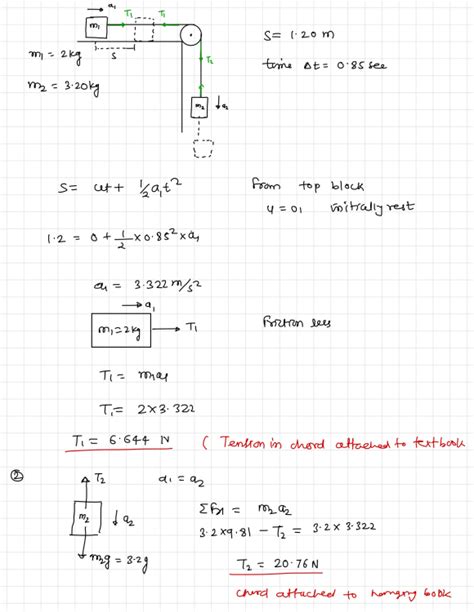 a₁
m₁ T₁ T₁
S
m₁ = 2kg
m₂ = 3.20kg
T₂
m₂ a₂
S = 1.20 m
time Δt = 0.85 sec
S = ut + 1/2 a₁t²
from top block
u = 0, initially rest
1.2 = 0 + 1/2 × 0.85² × a₁
a₁ = 3.322 m/s²
a₁
m₁=2kg T₁
friction less
T₁ = m₁a₁
T₁ = 2×3.322
T₁ = 6.644 N ( Tension in chord attached to textbook
② T₂ a₁ = a₂
m₂ a₂
m₂g = 3.2g
ΣFx = m₂a₂
3.2×9.81 − T₂ = 3.2 × 3.322
T₂ = 20.76 N
chord attached to hanging book